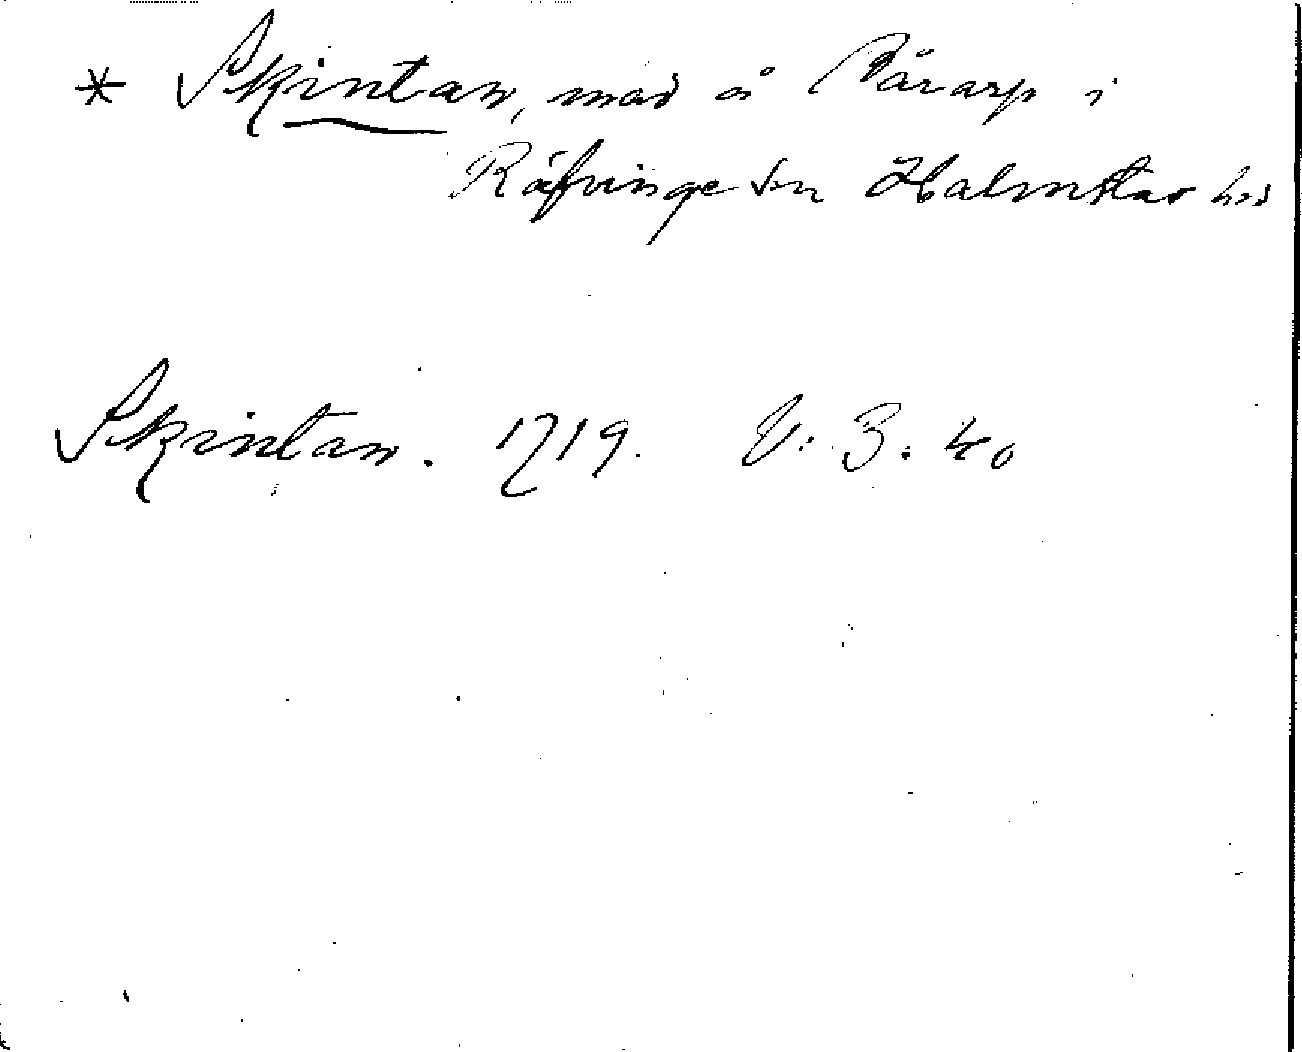 * Skintan, mad å Pärarp i
Räfvinge sn Halmstad hd
Skintan. 1719. V: 3: 40